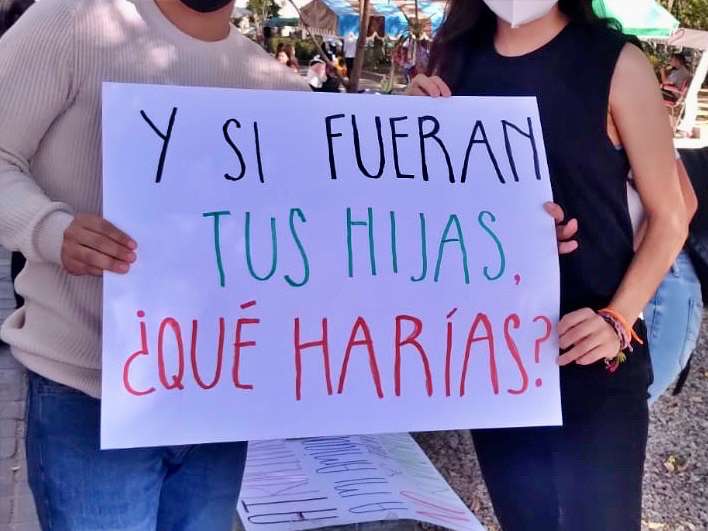 Y SI FUERAN
TUS HIJAS,
¿QUÉ HARÍAS?